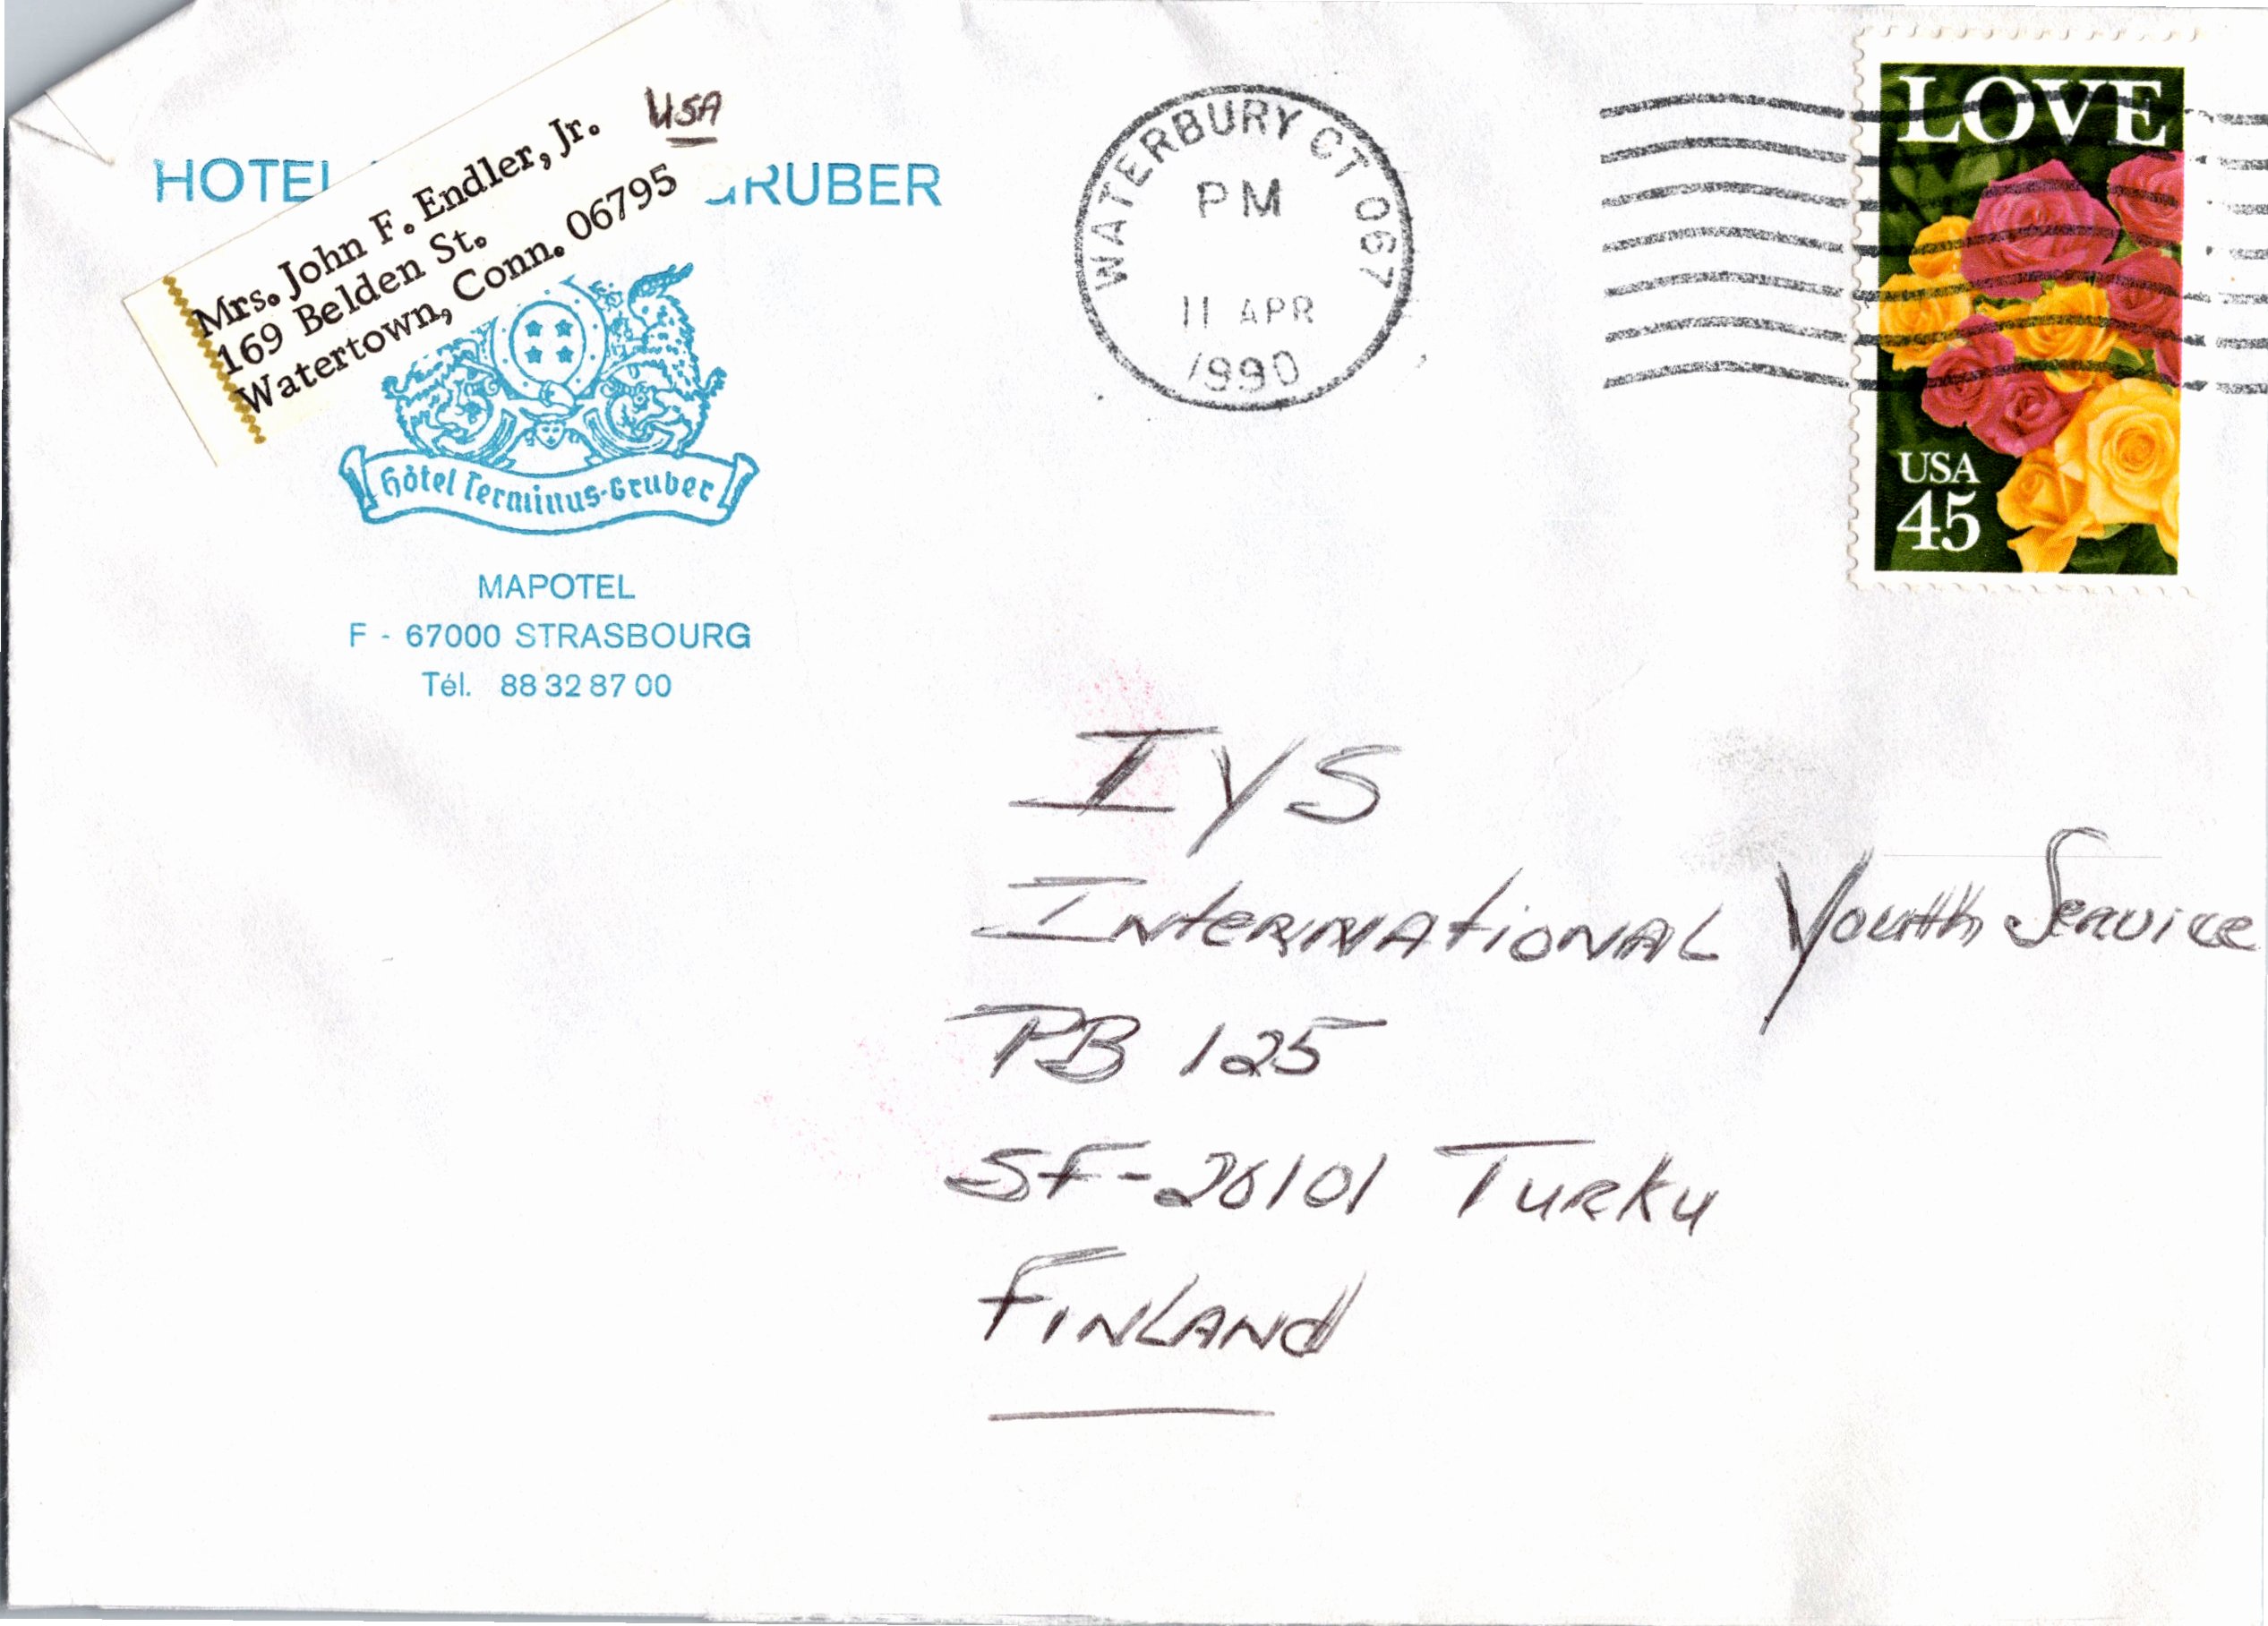 Mrs. John F. Endler, Jr.
USA
169 Belden St.
Watertown, Conn. 06795
HOTEL GRUBER
Hôtel Terminus-Gruber
MAPOTEL
F - 67000 STRASBOURG
Tél. 88 32 87 00
WATERBURY CT 067
PM
11 APR
1990
LOVE
USA
45
IYS
International Youth Service
PB 125
SF-20101 Turku
Finland